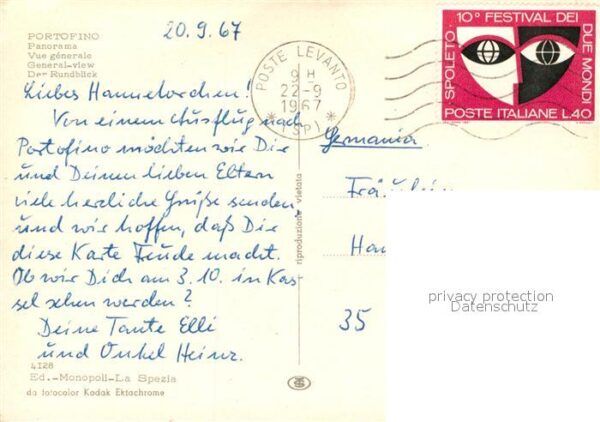 PORTOFINO
Panorama
Vue génerale
General-view
Der Rundblick
20.9.67
Liebes Hannelorchen!
Von einem Ausflug nach
Portofino möchten wir Dir
und Deinen lieben Eltern
viele herzliche Grüße senden
und wir hoffen, daß Dir
diese Karte Freude macht.
Ob wir Dich am 3.10. in Kas-
sel sehen werden?
Deine Tante Elli
und Onkel Heinz.
4128
Ed.-Monopoli-La Spezia
da fotocolor Kodak Ektachrome
riproduzione vietata
POSTE LEVANTO
9 H
22-9
1967
* (SP) *
SPOLETO 10° FESTIVAL DEI DUE MONDI
POSTE ITALIANE L.40
Germania
Fräulein
Han
35
privacy protection
Datenschutz